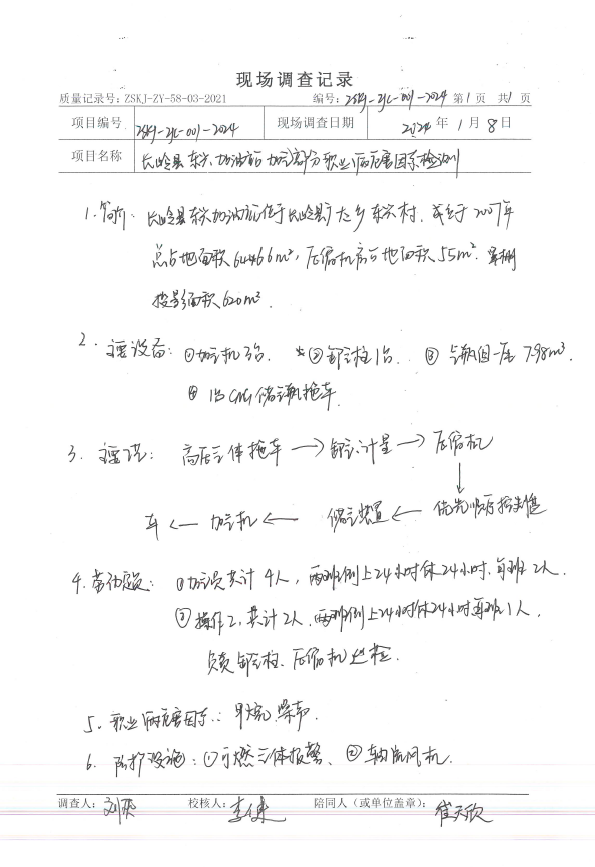 现场调查记录
质量记录号:ZSKJ-ZY-58-03-2021 编号:ZSKJ-ZJC-001-2024 第1页 共1页
项目编号 ZSKJ-ZJC-001-2024 现场调查日期 2024年1月8日
项目名称 长岭县东兴加油站加气部分职业病危害因素检测
1.简介:长岭县东兴加油站位于长岭县广太乡东兴村,若于2007年
总占地面积6446.6m²,压缩机房占地面积55m².罩棚
投影面积620m².
2.主要设备:①加气机3台. ②卸气柱1台. ③气瓶组一座7.98m³.
④1台CNG储气瓶拖车.
3.主要工艺:高压气体拖车→卸气计量→压缩机
↓
车←加气机←储气装置←优先顺序控制盘
4.劳动定员:①加气员共计4人,两班倒上24小时休24小时,每班2人.
②操作工,共计2人,两班倒上24小时休24小时每班1人,
负责卸气柱、压缩机巡检.
5.职业病危害因素:甲烷、噪声.
6.防护设施:①可燃气体报警、②轴流风机.
调查人:刘 校核人:李 陪同人(或单位盖章):崔天欣